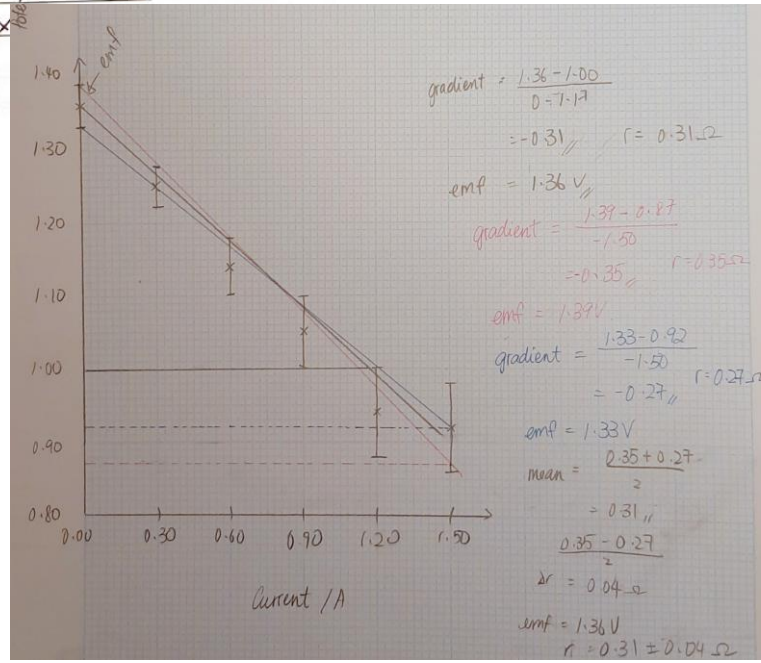 emf
1.40
1.30
1.20
1.10
1.00
0.90
0.80
0.00 0.30 0.60 0.90 1.20 1.50
Current /A
gradient = 1.36 - 1.00
0 - 1.17
= -0.31 r = 0.31 Ω
emf = 1.36 V
gradient = 1.39 - 0.87
-1.50
= -0.35 r = 0.35 Ω
emf = 1.39V
gradient = 1.33 - 0.92
-1.50
= -0.27 r = 0.27 Ω
emf = 1.33 V
mean = 0.35 + 0.27
2
= 0.31
0.35 - 0.27
2
Δr = 0.04 Ω
emf = 1.36 V
r = 0.31 ± 0.04 Ω